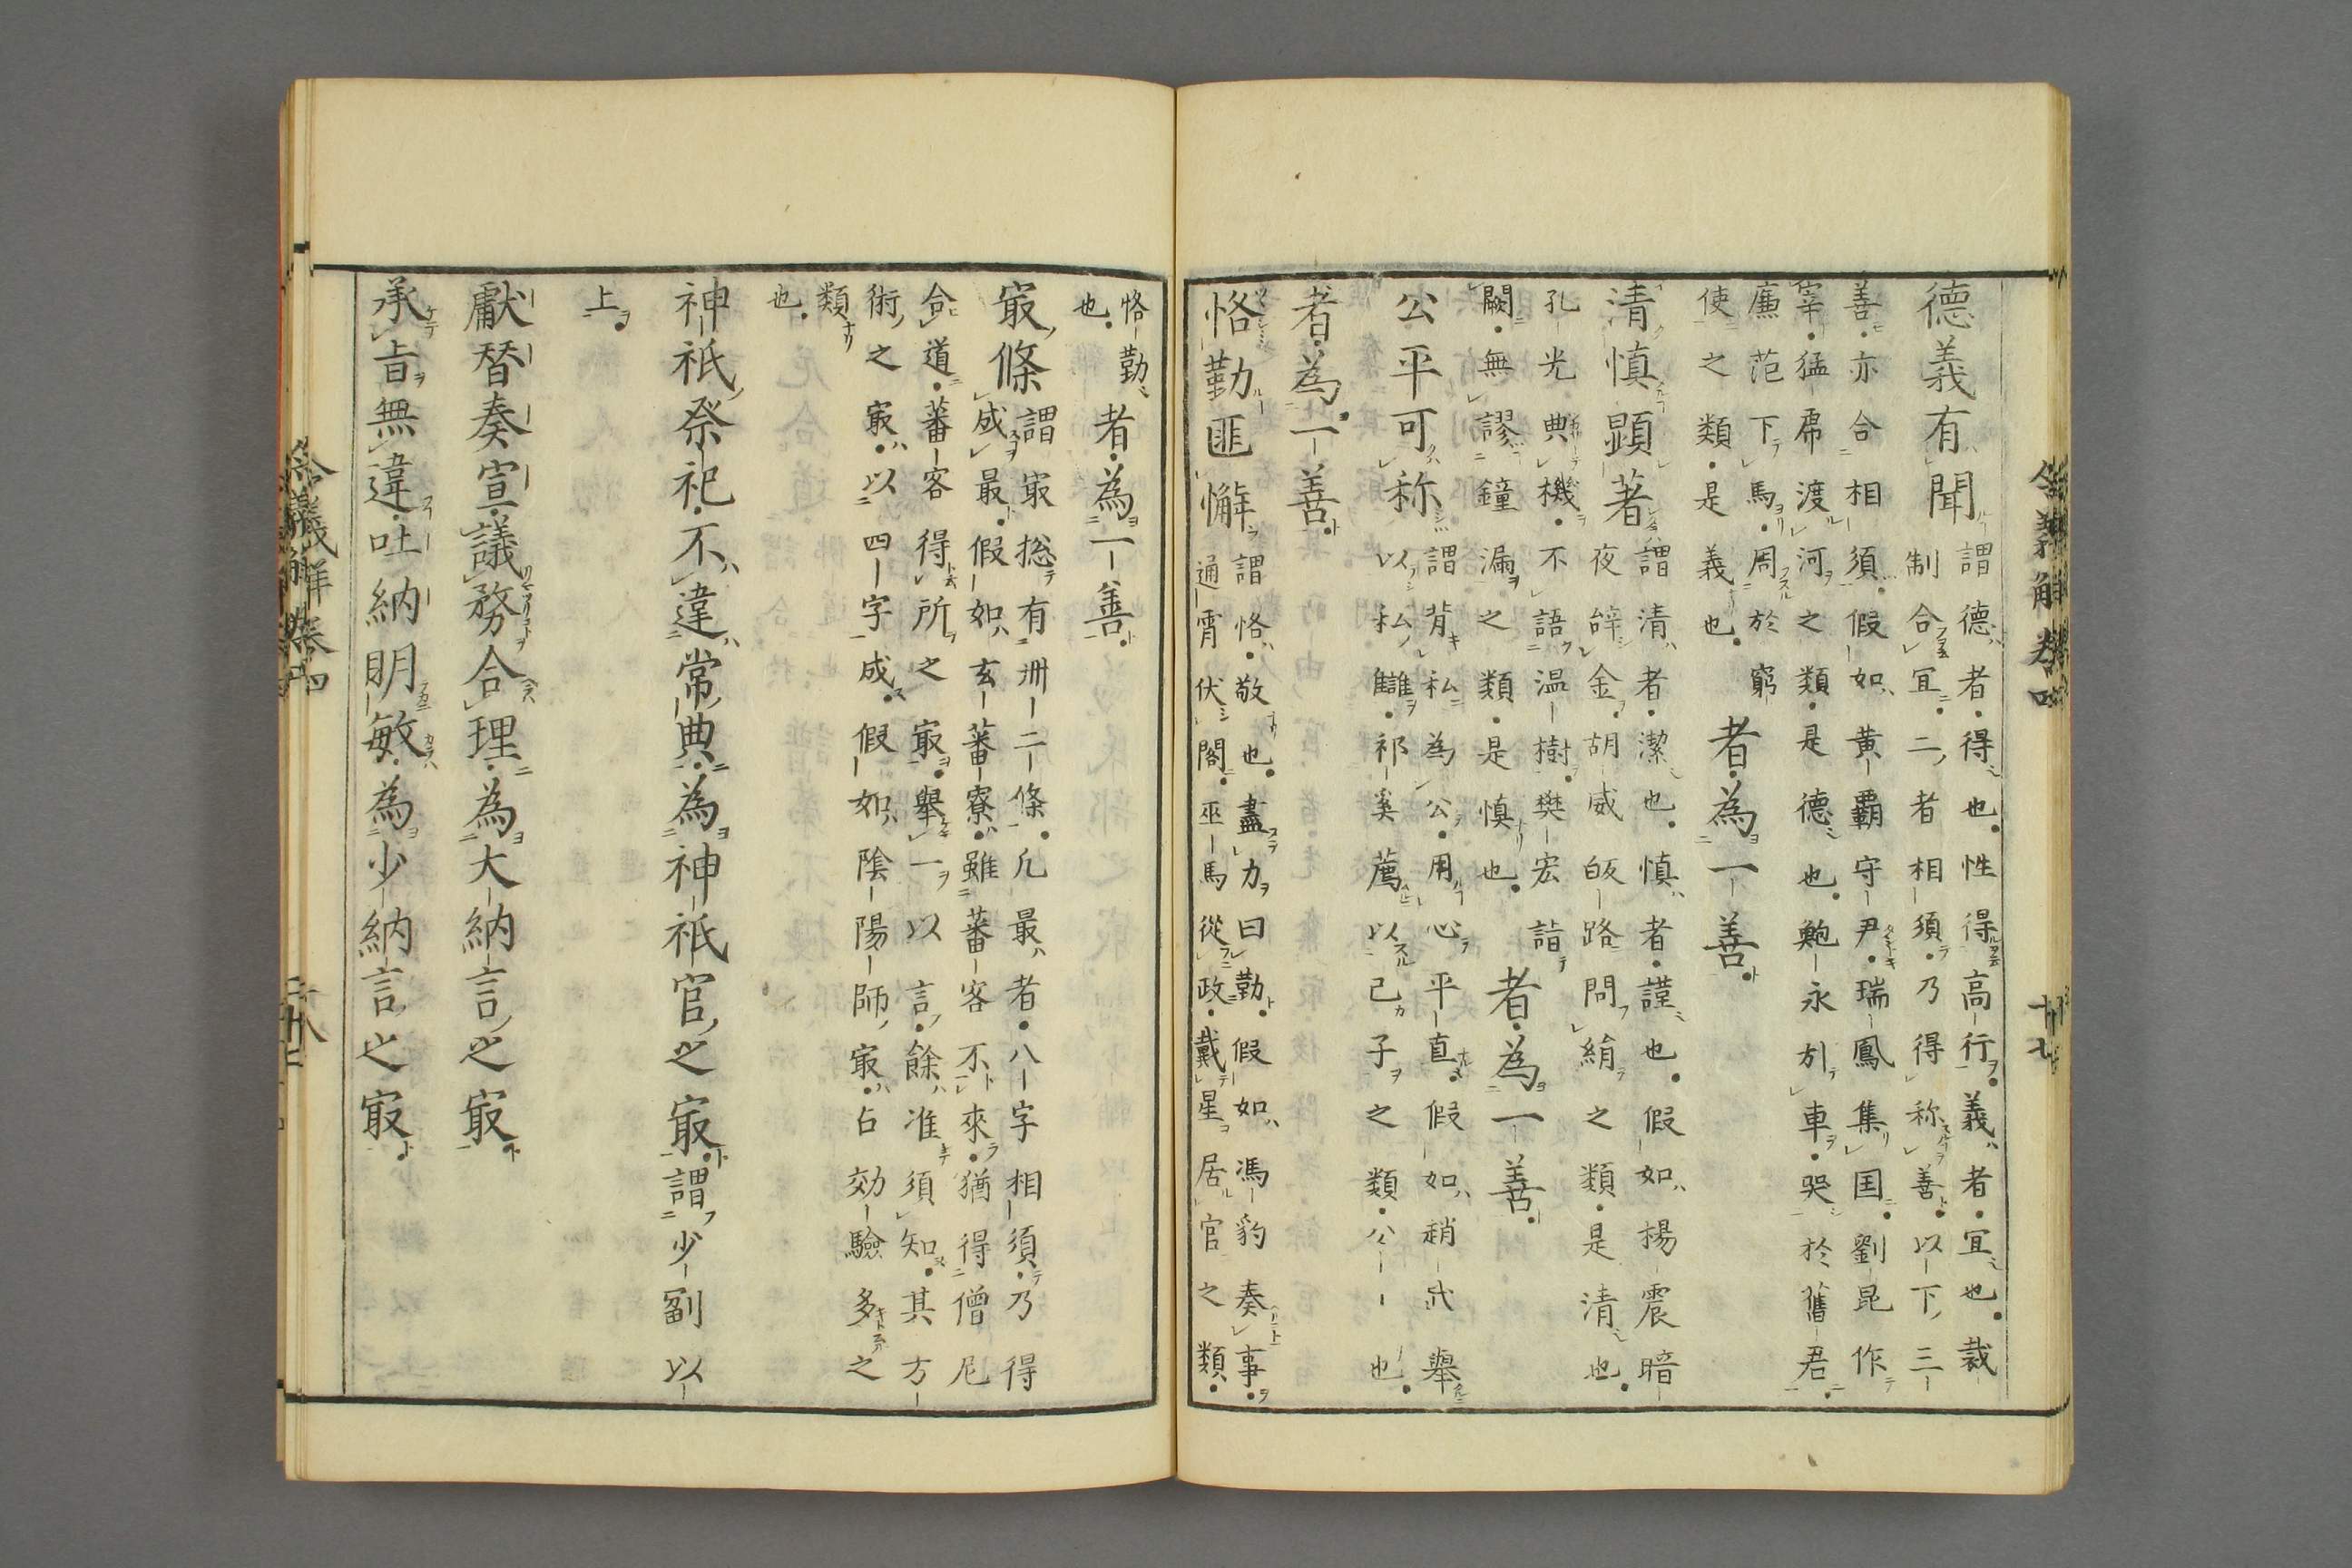 德義有聞謂德者得也性得高行義者宜也裁
制合宜二者相須乃得称善以下三
善亦合相須假如黄覇守尹瑞鳳集国劉昆作
宰猛席渡河之類是德也鮑永刋車哭於舊君
廉范下馬周於窮
使之類是義也者為一善
清慎顕著謂清者潔也慎者謹也假如楊震暗
夜辝金胡威皈路問絹之類是清也
孔光典機不語温樹樊宏詣
闕無謬鐘漏之類是慎也者為一善
公平可称謂背私為公用心平直假如趙武舉
以私讎祁奚薦以已子之類公一也
者為一善
恪勤匪懈謂恪敬也盡力曰勤假如馮豹奏事
通霄伏閣巫馬從政戴星居官之類
恪勤
也者為一善
㝡條謂㝡捴有卌二條凢最者八字相須乃得
成最假如玄蕃寮雖蕃客不來猶得僧尼
合道蕃客得所之㝡舉一以言餘准須知其方
術之㝡以四字成假如陰陽師㝡占効驗多之
類
也
神祇祭祀不違常典為神祇官之㝡謂少副以
上
獻替奏宣議務合理為大納言之㝡
承旨無違吐納明敏為少納言之㝡
令義解卷四
十七